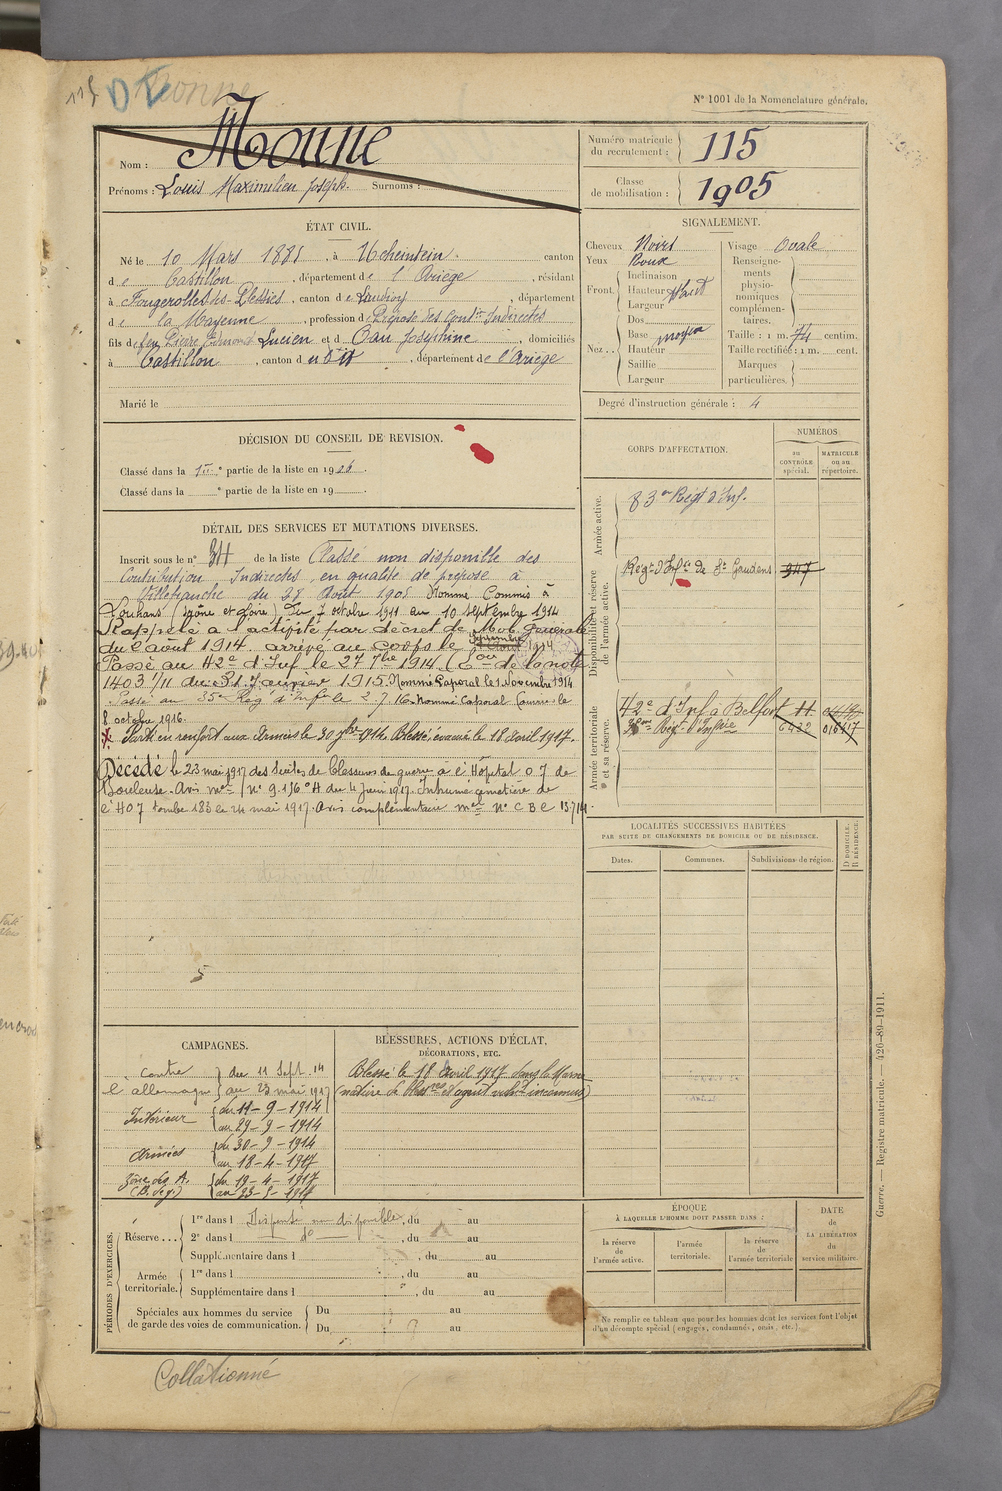 115
N° 1001 de la Nomenclature générale.
Nom : Monne
Prénoms : Louis Maximilien Joseph. Surnoms :
Numéro matricule du recrutement : 115
Classe de mobilisation : 1905
ÉTAT CIVIL.
Né le 10 Mars 1885, à Ucheintein. canton
de Castillon, département de l'Ariège, résidant
à Fougerolles-du-Plessis, canton de Landivy, département
de la Mayenne, profession de Préposé des Cont. Indirectes
fils de feu Pierre Edmond Lucien et de Pau Joséphine, domiciliés
à Castillon, canton dudit, département de l'Ariège
Marié le
SIGNALEMENT.
Cheveux Noirs
Yeux Roux
Front. Inclinaison
Hauteur Haut
Largeur
Nez. Dos
Base moyen
Hauteur
Saillie
Largeur
Visage Ovale
Renseignements physionomiques complémentaires.
Taille : 1 m. 74 centim.
Taille rectifiée : 1 m. cent.
Marques particulières.
Degré d'instruction générale : 4
DÉCISION DU CONSEIL DE REVISION.
Classé dans la 1re partie de la liste en 1906.
Classé dans la e partie de la liste en 19
CORPS D'AFFECTATION.
NUMÉROS
au CONTRÔLE spécial.
MATRICULE ou au répertoire.
Armée active.
83e Régt d'Inf.
Disponibilité et réserve de l'armée active.
Régt d'Infie de St Gaudens 947
Armée territoriale et sa réserve.
42e d'Inf à Belfort 11
35ème Régt d'Infie 6432 01647
DÉTAIL DES SERVICES ET MUTATIONS DIVERSES.
Inscrit sous le n° 34 de la liste Classé non disponible des
Contribution Indirectes en qualité de préposé à
Villefranche du 28 Août 1905 Nommé Commis à
Louhans (Saône et Loire) Du 7 octobre 1911 au 10 septembre 1914
Rappelé à l'activité par décret de Mob. Générale
du 2 août 1914. arrivé au corps le 11 Septembre 1914
Passé au 42e d'Inf. le 27 7bre 1914. de la note
1403 1/11 du 31 Janvier 1915. Nommé Caporal le 1 Novembre 1914
Passé au 35e Rég d'Infie le 2.7.16. Nommé Caporal fourrier le
8 octobre 1916.
Parti en renfort aux Armées le 30 7bre 1914. Blessé, évacué le 18 Avril 1917.
Décédé le 23 mai 1917 des suites de blessures de guerre à l'Hôpital 07 de
Bouleuse. Avis mel n° 9.156 H du 4 Juin 1917. Inhumé cimetière de
l'H07 tombe 183 le 24 mai 1917. Avis complémentaire mel N° C B C 13714.
LOCALITÉS SUCCESSIVES HABITÉES
PAR SUITE DE CHANGEMENTS DE DOMICILE OU DE RÉSIDENCE.
Dates. Communes. Subdivisions de région. D DOMICILE. R RÉSIDENCE.
CAMPAGNES.
Contre l'allemagne du 11 Sept. 14
au 23 mai 1917
Intérieur du 11-9-1914
au 29-9-1914
Armées du 30-9-1914
au 18-4-1917
Zône des A. (B. de g.) du 19-4-1917
au 23-5-1917
BLESSURES, ACTIONS D'ÉCLAT,
DÉCORATIONS, ETC.
Blessé le 18 Avril 1917 dans la Marne
(nature de bless res et agent vulnt inconnus)
PÉRIODES D'EXERCICES.
Réserve... 1re dans l Dispensé non disponible, du au
2e dans l do, du au
Supplémentaire dans l , du au
Armée territoriale. 1re dans l , du au
Supplémentaire dans l , du au
Spéciales aux hommes du service de garde des voies de communication. Du au
Du au
ÉPOQUE
À LAQUELLE L'HOMME DOIT PASSER DANS :
la réserve de l'armée active.
l'armée territoriale.
la réserve de l'armée territoriale
DATE de LA LIBÉRATION du service militaire.
Ne remplir ce tableau que pour les hommes dont les services font l'objet
d'un décompte spécial (engagés, condamnés, omis, etc.)
Guerre. — Registre matricule. — 426-89-1911.
Collationné